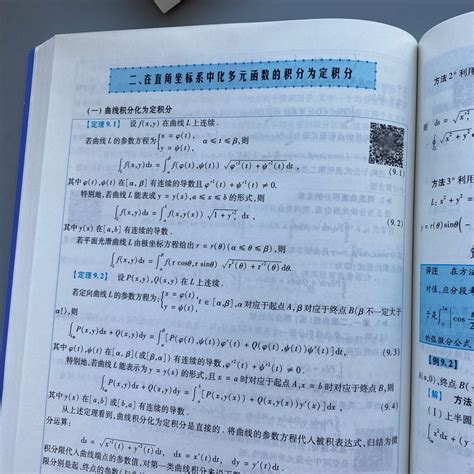 二、在直角坐标系中化多元函数的积分为定积分
(一) 曲线积分化为定积分
【定理 9.1】 设 f(x,y) 在曲线 L 上连续.
若曲线 L 的参数方程为 {x = φ(t), y = ψ(t), α ≤ t ≤ β,则
∫_L f(x,y)ds = ∫_α^β f(φ(t),ψ(t)) √(φ'²(t) + ψ'²(t)) dt , (9.1)
其中 φ(t),ψ(t) 在 [α,β] 有连续的导数且 φ'²(t) + ψ'²(t) ≠ 0.
特别地,若曲线 L 能表成 y = y(x),a ≤ x ≤ b 的形式,则
∫_L f(x,y)ds = ∫_a^b f(x,y(x)) √(1 + y'_x²) dx , (9.2)
其中 y(x) 在 [a,b] 有连续的导数.
若平面光滑曲线 L 由极坐标方程给出 r = r(θ)(α ≤ θ ≤ β),则
∫_L f(x,y)ds = ∫_α^β f(r cosθ,r sinθ) √(r²(θ) + r'²(θ)) dθ.
【定理 9.2】 设 P(x,y),Q(x,y) 在 L 上连续.
若定向曲线 L 的参数方程为 {x = φ(t), y = ψ(t), t ∈ [α,β],α 对应于起点 A,β 对应于终点 B(β 不一定大于
α!),则
∫_L P(x,y)dx + Q(x,y)dy = ∫_α^β [P(φ(t),ψ(t))φ'(t) + Q(φ(t),ψ(t))ψ'(t)]dt, (9.3)
其中 φ(t),ψ(t) 在 [α,β](或 [β,α]) 有连续的导数,φ'²(t) + ψ'²(t) ≠ 0.
特别地,若曲线 L 能表示为 y = y(x) 的形式,且 x = a 时对应于起点 A,x = b 时对应于终点 B,则
∫_L P(x,y)dx + Q(x,y)dy = ∫_a^b [P(x,y(x)) + Q(x,y(x))y'(x)] dx, (9.4)
其中 y(x) 在 [a,b](或 [b,a]) 有连续的导数.
从上述定理看到,曲线积分化为定积分是直接的. 将曲线的参数方程代入被积表达式,归结为微
分运算:
ds = √(x'²(t) + y'²(t)) dt, dx = x'(t)dt, dy = y'(t)dt.
积分限代入曲线端点的参数值,对第一类曲线积分来说
方法 2° 利用
则
方法 3° 利用
评注 在方法
对值,应分段考
于是
的弧微分公式
【例 9.2】
【解】 方法
(1) 上半圆